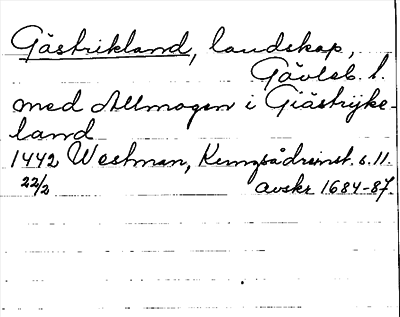 Gästrikland, landskap,
Gävleb. l.
med Allmogen i Giästrijke-
land
1442 Westman, Kungsådreinst. s. 11.
22/2 avskr 1684-87.